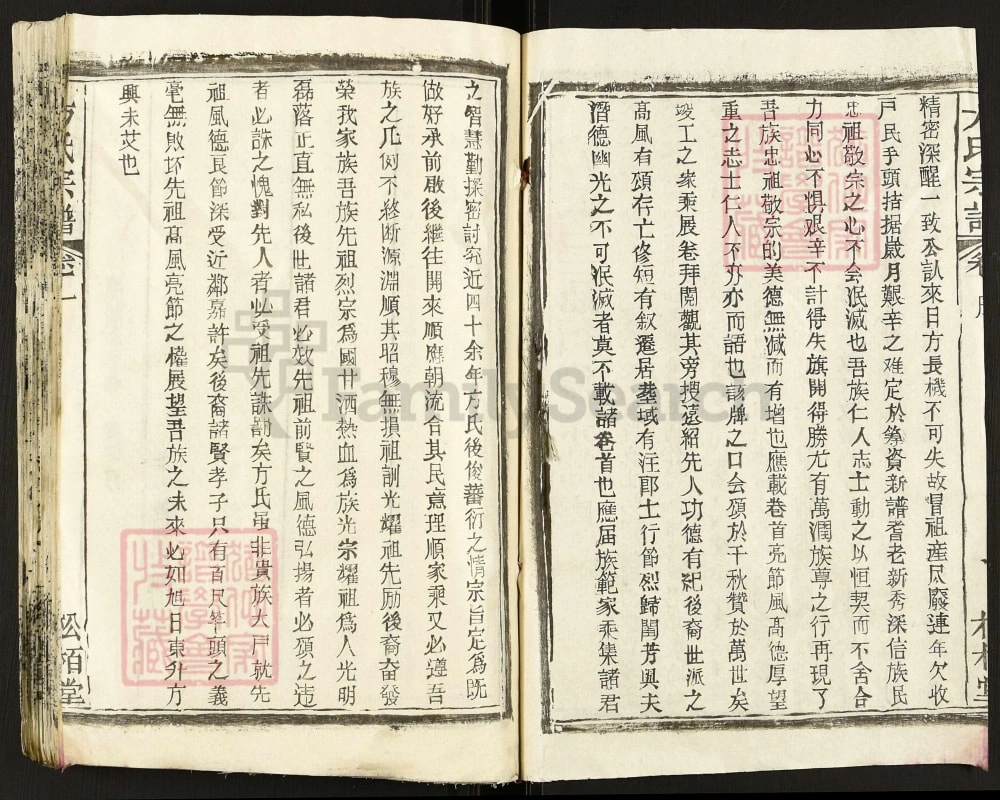 精密深醒一致公認來日方長機不可失故冒祖產尽廢連年欠收
戶民乎頭拮据歲月艱辛之难定於筹資新譜耆老新秀深信族民
忠祖敬宗之心不会泯滅也吾族仁人志士動之以恒契而不舍合
力同心不惧艰辛不計得失旗開得勝尤有萬潤族尊之行再現了
吾族忠祖敬宗的美德無减而有增也應載卷首亮節風高德厚望
重之志士仁人不亦亦而語也該牌之口会頌於千秋赞於萬世矣
竣工之家乘展卷拜閱觀其旁搜遠紹先人功德有紀後裔世派之
高風有頌存亡修短有叙遷居塋域有注耶土行節烈歸閨芳與夫
潛德幽光之不可泯滅者莫不載諸卷首也應届族範家乘集諸君
之智慧勤探密討究近四十余年方氏後俊蕃衍之情宗旨定為既
做好承前啟後繼往開來順應朝流合其民意理順家乘又必遵吾
族之凡例不終断源淵順其昭穆無損祖訓光耀祖先励後裔奋發
榮我家族吾族先祖烈宗為國廿洒熱血為族光宗耀祖為人光明
磊落正直無私後世諸君必效先祖前賢之風德弘揚者必頌之违
者必誅之愧對先人者必受祖先誅罰矣方氏虽非貴族大戶就先
祖風德良節深受近鄰嘉許矣後裔諸賢孝子只有百尺竿頭之義
毫無败坏先祖高風亮節之權展望吾族之未來必如旭日東升方
興未艾也
方氏宗譜
卷一
松栢堂
FamilySearch